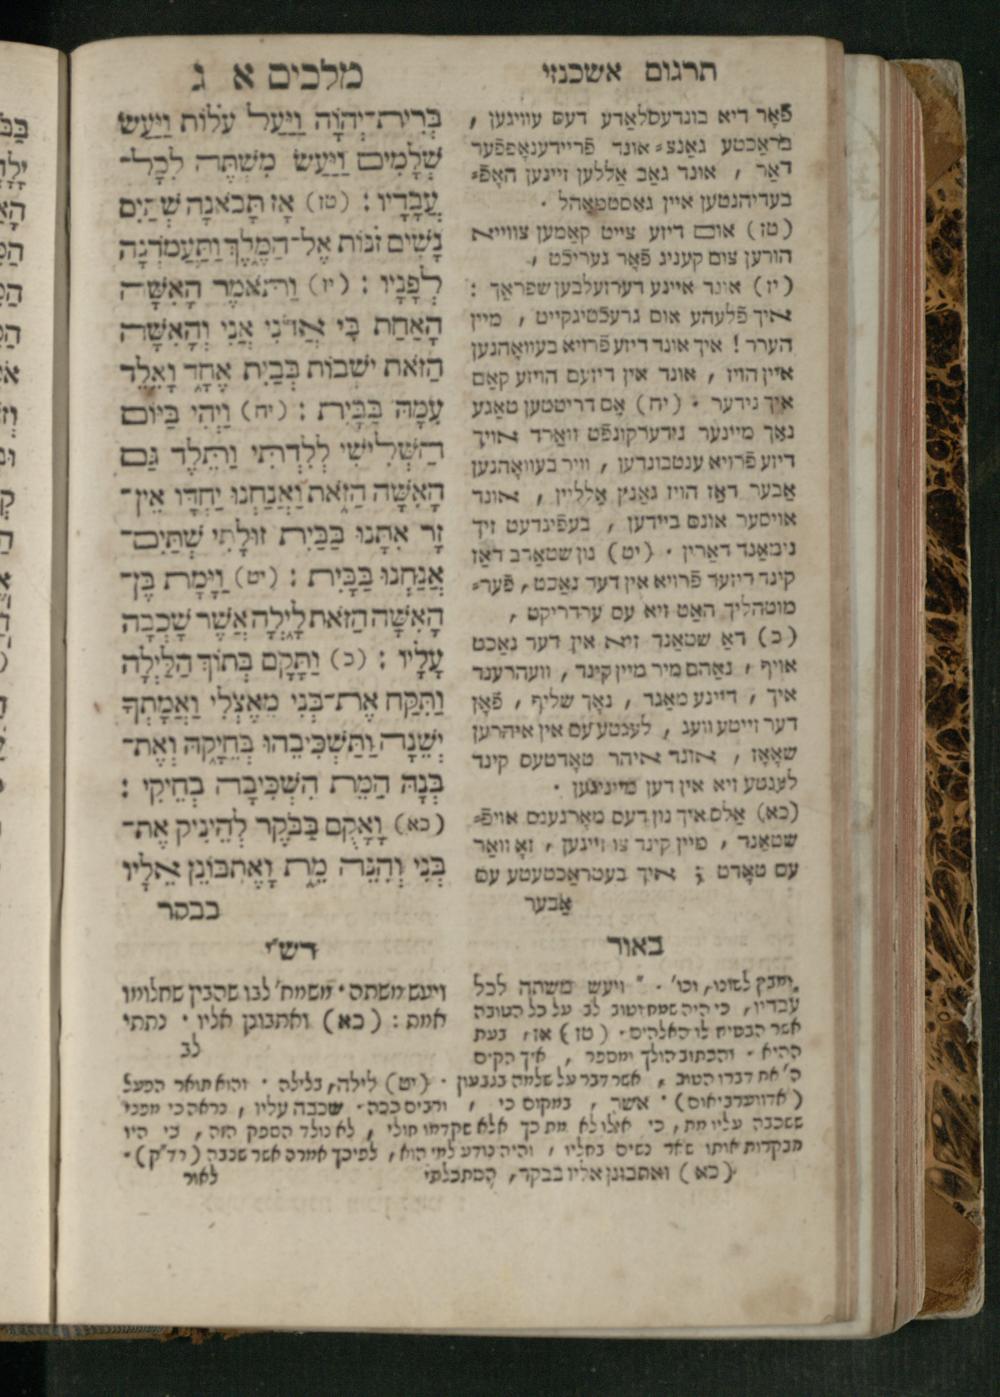 תרגום אשכנזי
מלכים א ג
פֿאָר דיא בונדעסלאַדע דעס עוויגען ,
בראַכטע גאַנצ= אונד פֿריידענאָפּפֿער
דאַר , אונד גאַב אַללען זיינען האָפֿ=
בעדיהנטען איין גאַסטמאַהל .
(טז) אום דיזע צייט קאַמען צווייא
הורען צום קעניג פֿאָר געריכֿט ,
(יז) אונד איינע דערזעלבען שפּראַך :
איך פֿלעהע אום גרעכֿטיגקייט , מיין
הערר ! איך אונד דיזע פֿרויא בעוואָהנען
איין הויז , אונד אין דיזעם הויזע קאַם
איך נידער . (יח) אַם דריטטען טאַגע
נאַך מיינער נידערקונפֿט וואַרד אויך
דיזע פֿרויא ענטבונדען , וויר בעוואָהנען
אַבער דאַז הויז גאַנץ אַלליין , אונד
אויסער אונס ביידען , בעפֿינדעט זיך
נימאַנד דאַרין . (יט) נון שטאַרב דאַז
קינד דיזער פֿרויא אין דער נאַכט , פֿער=
מוטהליך האַט זיא עס ערדריקט ,
(כ) דאַ שטאַנד זיא אין דער נאַכט
אויף , נאַהם מיר מיין קינד , וועהרענד
איך , דיינע מאַגד , נאָך שליף , פֿאָן
דער זייטע וועג , לעגטע עס אין איהרען
שאָאָז , אונד איהר טאָדטעס קינד
לעגטע זיא אין דען מייניגען .
(כא) אַלס איך נון דעם מאָרגענס אויפֿ=
שטאַנד , מיין קינד צו זייגען , זאָ וואַר
עס טאָדט ; איך בעטראַכטעטע עס
אַבער
בְּרִית־יְהֹוָה וַיַּעַל עֹלוֹת וַיַּעַשׂ
שְׁלָמִים וַיַּעַשׂ מִשְׁתֶּה לְכָל־
עֲבָדָיו : (טז) אָז תָּבֹאנָה שְׁתַּיִם
נָשִׁים זֹנוֹת אֶל־הַמֶּלֶךְ וַתַּעֲמֹדְנָה
לְפָנָיו : (יז) וַתֹּאמֶר הָאִשָּׁה
הָאַחַת בִּי אֲדֹנִי אֲנִי וְהָאִשָּׁה
הַזֹּאת יֹשְׁבוֹת בְּבַיִת אֶחָד וָאֵלֵד
עִמָּהּ בַּבָּיִת : (יח) וַיְהִי בַּיּוֹם
הַשְּׁלִישִׁי לְלִדְתִּי וַתֵּלֶד גַּם
הָאִשָּׁה הַזֹּאת וַאֲנַחְנוּ יַחְדָּו אֵין־
זָר אִתָּנוּ בַּבַּיִת זוּלָתִי שְׁתַּיִם־
אֲנַחְנוּ בַּבָּיִת : (יט) וַיָּמָת בֶּן־
הָאִשָּׁה הַזֹּאת לָיְלָה אֲשֶׁר שָׁכְבָה
עָלָיו : (כ) וַתָּקָם בְּתוֹךְ הַלַּיְלָה
וַתִּקַּח אֶת־בְּנִי מֵאֶצְלִי וַאֲמָתְךָ
יְשֵׁנָה וַתַּשְׁכִּיבֵהוּ בְּחֵיקָהּ וְאֶת־
בְּנָהּ הַמֵּת הִשְׁכִּיבָה בְחֵיקִי :
(כא) וָאָקֻם בַּבֹּקֶר לְהֵינִיק אֶת־
בְּנִי וְהִנֵּה מֵת וָאֶתְבּוֹנֵן אֵלָיו
בבקר
באור
לשונו , וכו' . " ויעש משתה לכל
עבדיו , כי היה שמח וטוב לב על כל הטובה
אשר הבטיח לו האלהים . (טז) אז , בעת
ההיא . והכתוב הולך ומספר , איך הקים
רש"י
ויעש משתה . משמח' לבו שהבין שחלומו
אמת : (כא) ואתבונן אליו . נתתי
לב
ה' את דברו הטוב , אשר דבר על שלמה בגבעון . (יט) לילה , בלילה . והוא תואר הפעל
(אדווערביאום) . אשר , במקום כי , ורבים ככה . שכבה עליו , נראה כי מפני
ששכבה עליו מת , כי אלו לא מת כך אלא שקדמו חולי , לא נולד הספק הזה , כי היו
מבקרות אותו שאר נשים בחליו , והיה נודע למי הוא , לפיכך אמרה אשר שכבה (רד"ק) .
(כא) ואתבונן אליו בבקר , הסתכלתי
לאור